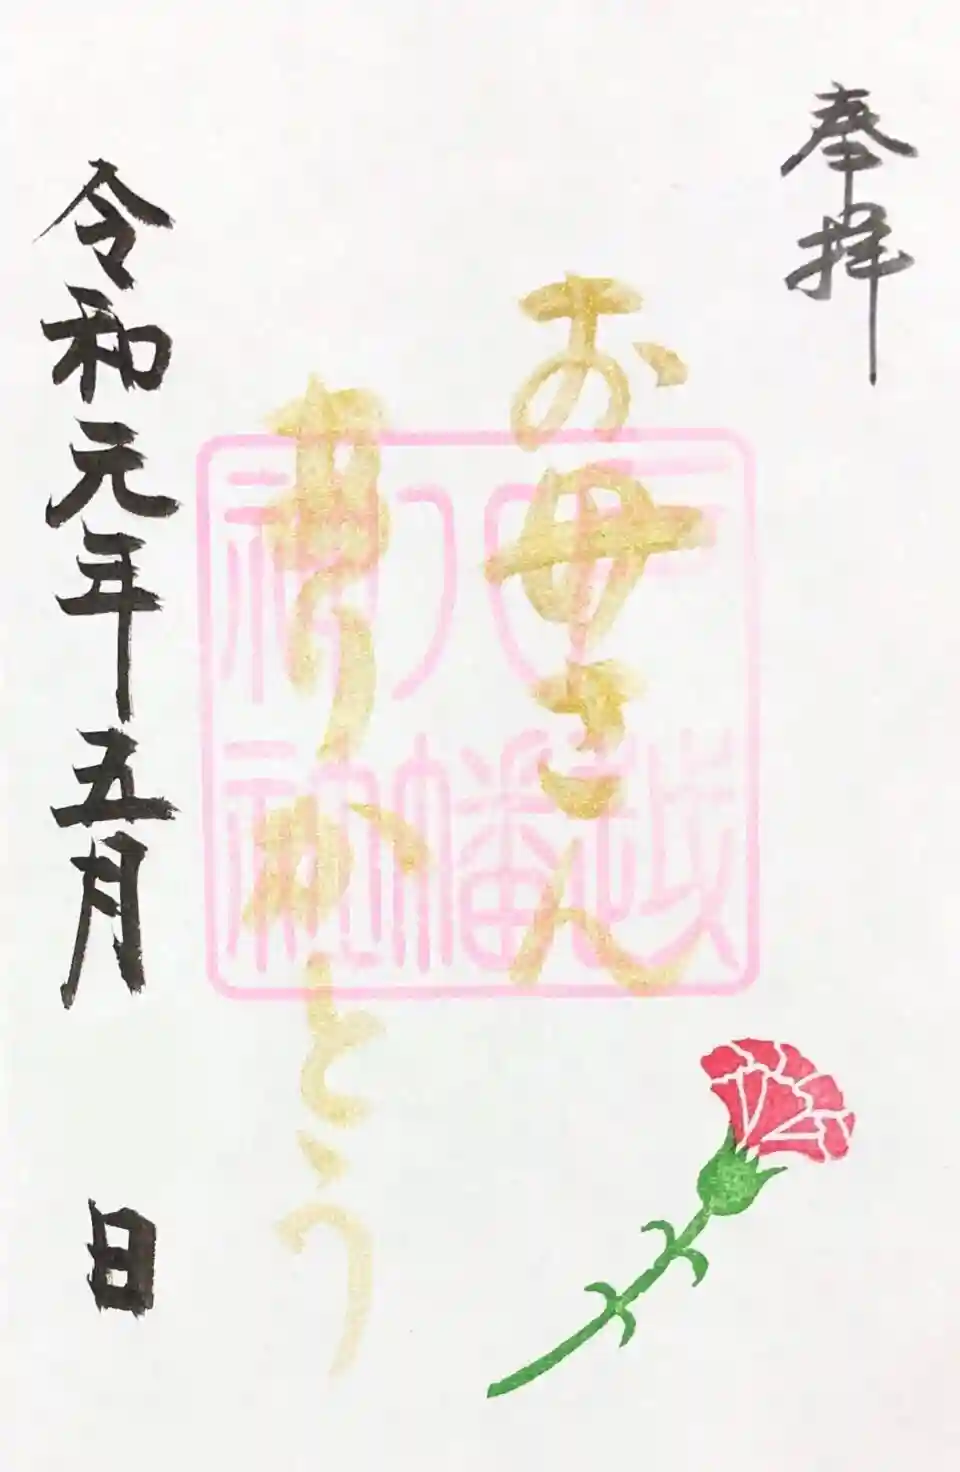 奉拝
お母さん
ありがとう
戸越
八幡
神社
令和元年五月 日